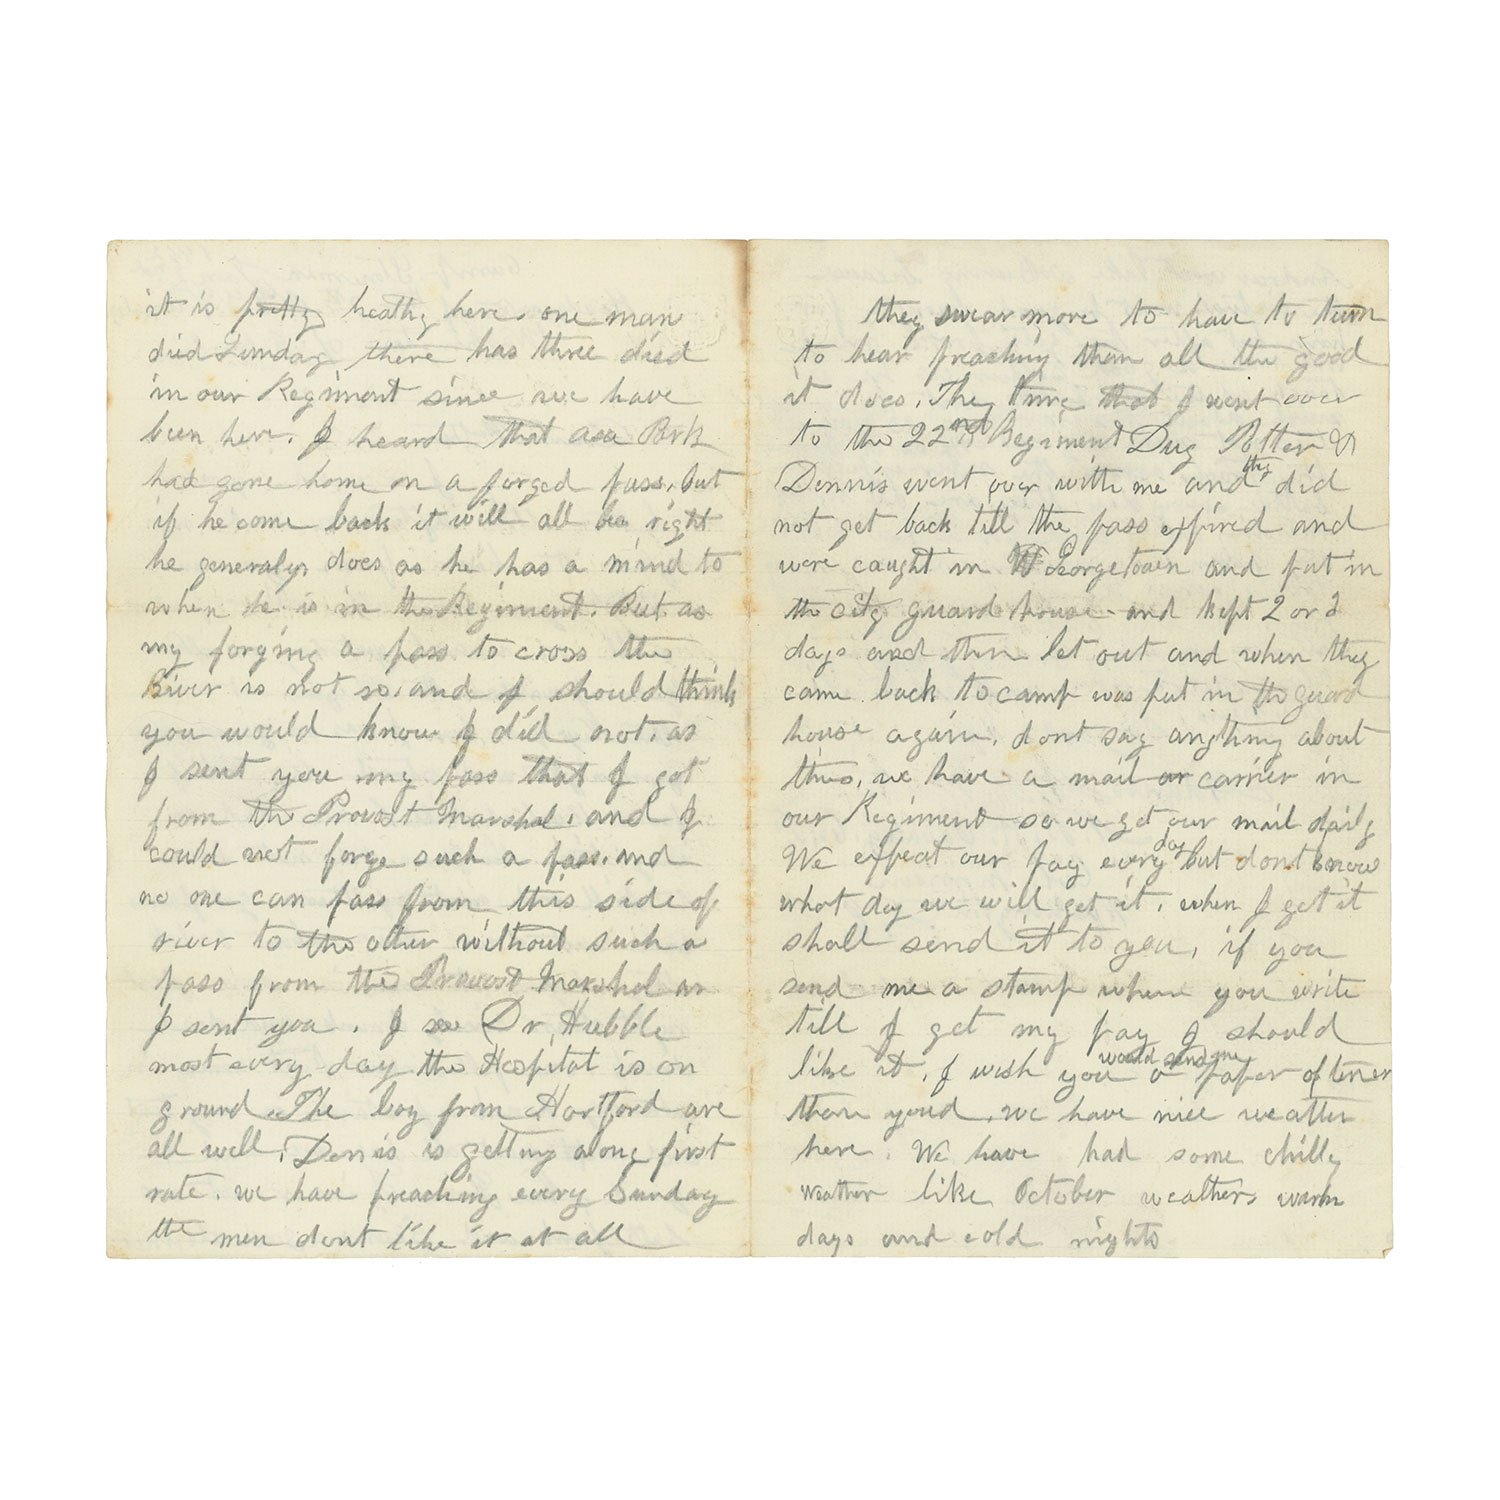 it is pretty heathy here. one man
died Sunday there has three died
in our Regiment since we have
been here. I heard that asa Park
had gone home on a forged pass. but
if he come back it will all be right
he generaly does as he has a mind to
when he is in the Regiment. But as
my forging a pass to cross the
River is not so. and I should think
you would know I did not. as
I sent you my pass that I got
from the Provost Marshal. and I
could not forge such a pass. and
no one can pass from this side of
river to the other without such a
pass from the Provost Marshal as
I sent you. I see Dr Hubble
most every day the Hospital is on
ground. The boy from Hartford are
all well. Dennis is getting along first
rate. we have preaching every Sunday
the men dont like it at all
they swear more to have to turn
to hear preaching than all the good
it does. The time that I went over
to the 22nd Regiment Dug Potter &
Dennis went over with me and they did
not get back till the pass expired and
were caught in Georgetown and put in
the city guard house and kept 2 or 3
days and then let out and when they
came back to camp was put in the guard
house again. dont say anything about
this. we have a mail carrier in
our Regiment so we get our mail daily
We expect our pay every day but dont know
what day we will get it. when I get it
shall send it to you. if you
send me a stamp when you write
till I get my pay I should
like it. I wish you would send me a paper oftener
than youd. we have nice weather
here. We have had some chilly
weather like October weather warm
days and cold nights